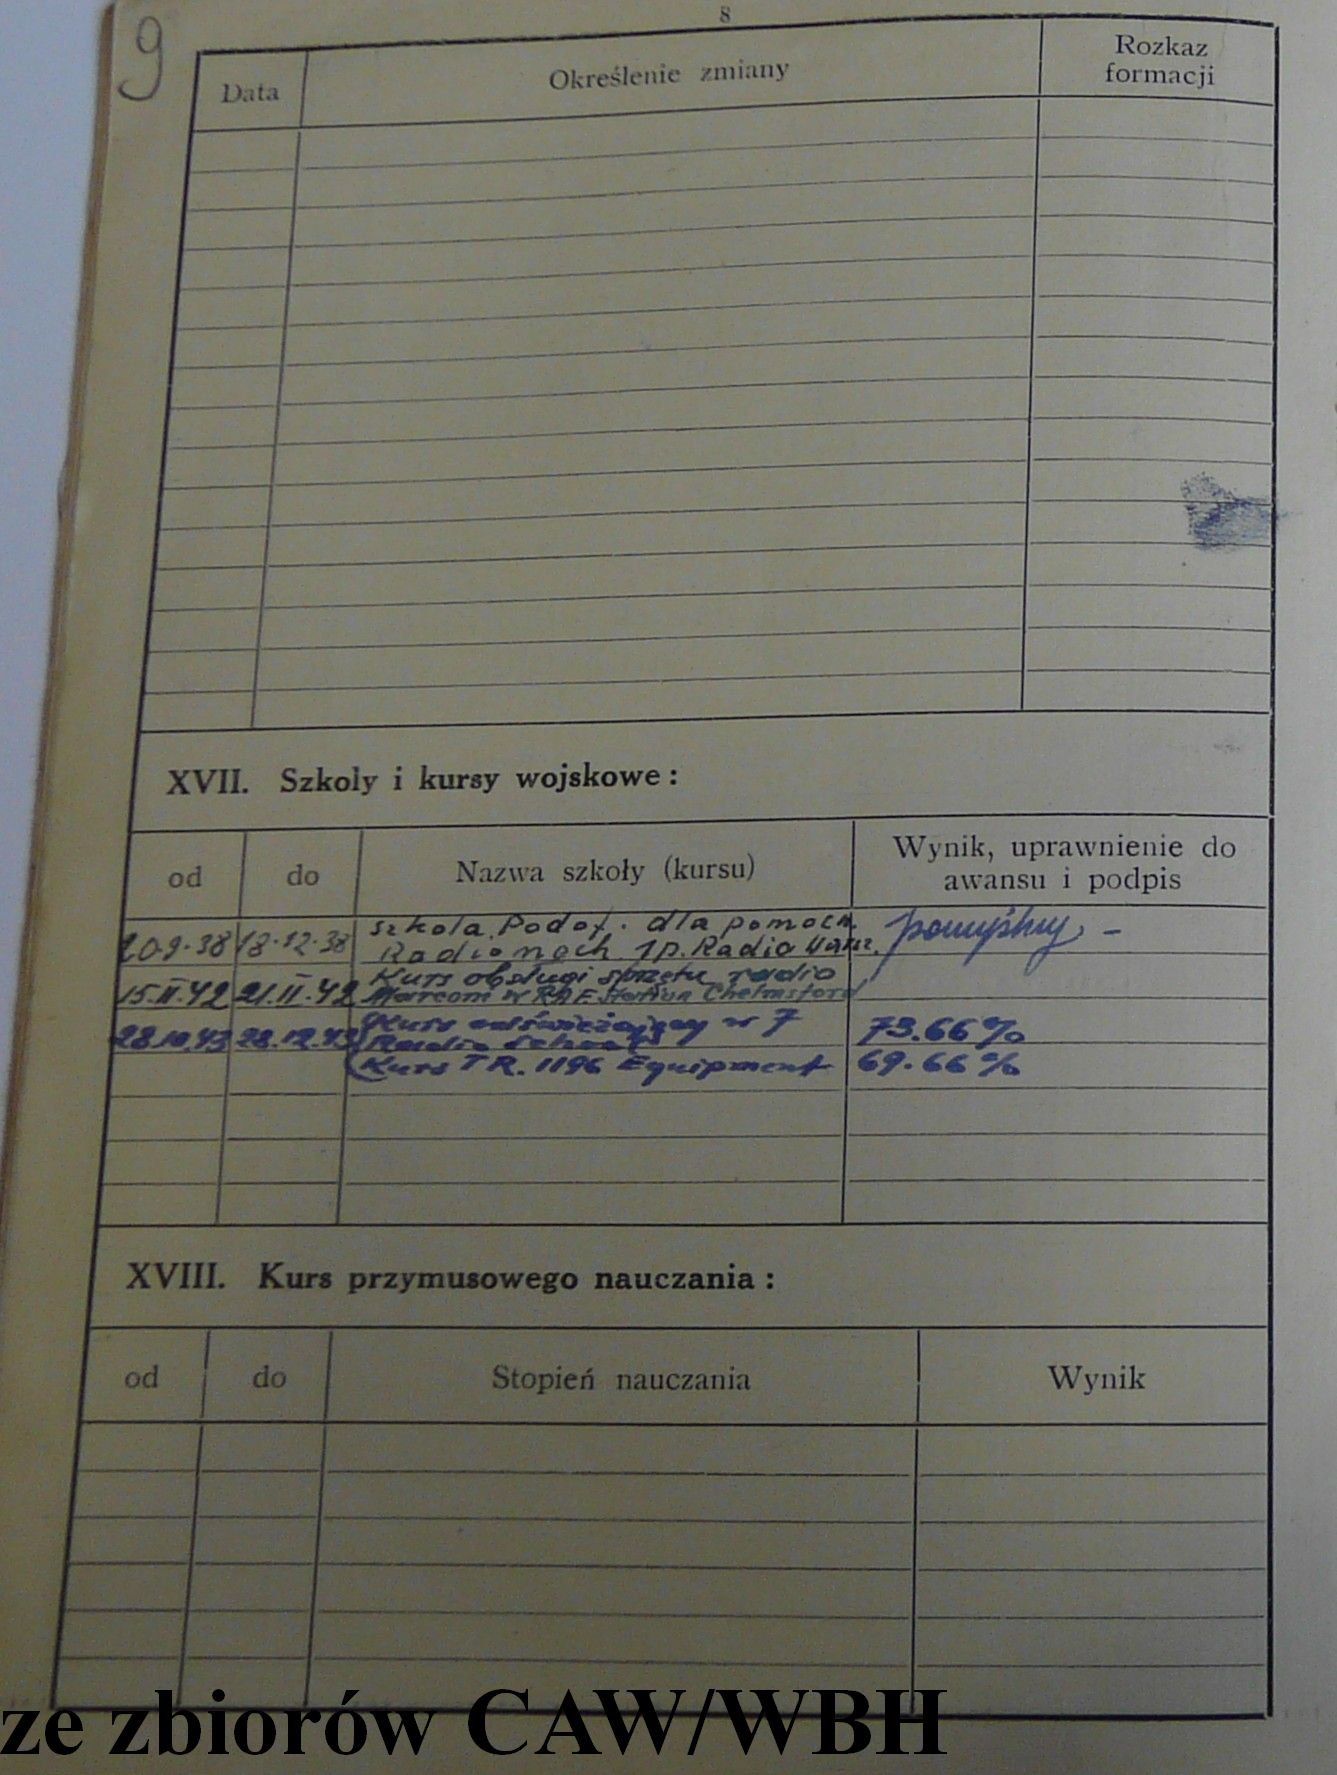 9
8
Data
Określenie zmiany
Rozkaz
formacji
XVII. Szkoly i kursy wojskowe:
od
do
Nazwa szkoły (kursu)
Wynik, uprawnienie do
awansu i podpis
20.9.38
18.12.38
Szkoła Podof. dla pomocn.
Radiomech. 1p. Radio Warsz.
pomyślny. -
15.II.42
21.II.42
Kurs obsługi sprzętu radio
Marconi w RAF Station Chelmsford
28.10.43
28.12.43
Kurs odświeżający w 7
Radio School
73.66%
Kurs TR. 1196 Equipment
69.66%
XVIII. Kurs przymusowego nauczania:
od
do
Stopień nauczania
Wynik
ze zbiorów CAW/WBH